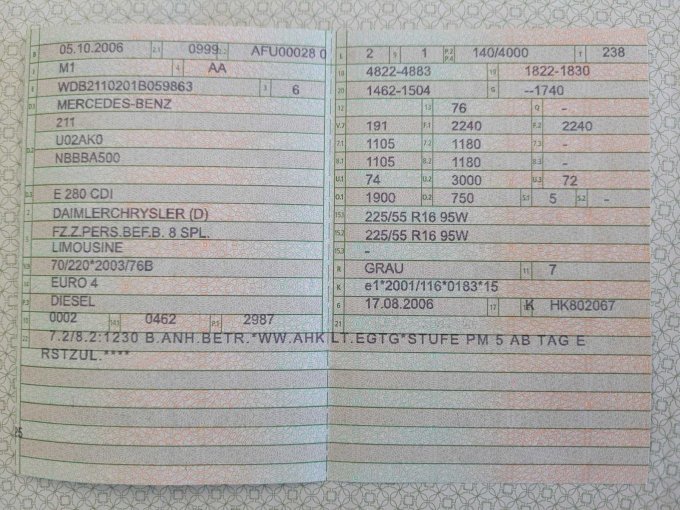 B 05.10.2006 2.1 0999 2.2 AFU00028 0
J M1 4 AA
E WDB2110201B059863 3 6
D.1 MERCEDES-BENZ
211
D.2 U02AK0
NBBBA500
D.3 E 280 CDI
2 DAIMLERCHRYSLER (D)
5 FZ.Z.PERS.BEF.B. 8 SPL.
LIMOUSINE
V.9 70/220*2003/76B
14 EURO 4
P.3 DIESEL
10 0002 14.1 0462 P.1 2987
22 7.2/8.2:1230 B.ANH.BETR.*WW.AHK LT.EGTG*STUFE PM 5 AB TAG E
RSTZUL.****
L 2 9 1 P.2 P.4 140/4000 T 238
18 4822-4883 19 1822-1830
20 1462-1504 G --1740
12 13 76 Q -
V.7 191 F.1 2240 F.2 2240
7.1 1105 7.2 1180 7.3 -
8.1 1105 8.2 1180 8.3 -
U.1 74 U.2 3000 U.3 72
O.1 1900 O.2 750 S.1 5 S.2 -
15.1 225/55 R16 95W
15.2 225/55 R16 95W
15.3 -
R GRAU 11 7
K e1*2001/116*0183*15
6 17.08.2006 17 K 16 HK802067
21